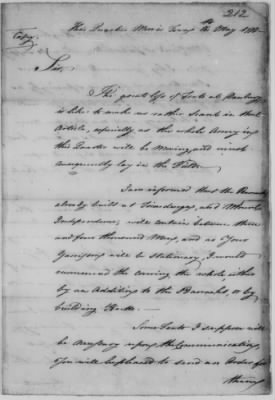 212
Copy
Head Quarters Morris Town May 1777
Sir,
The great loss of Tents at Danbury
is like to make us rather scant in that
Article, especially as the whole Army in
this Quarter will be moving, and must
consequently lay in the Field.
I am informed that the Barracks
already built at Ticonderoga, and Mount
Independence, will contain between three
and four thousand Men, and as your
Garrisons will be stationary, I would
recommend the covering the whole, either
by an Addition to the Barracks, or by
building Huts.
Some Tents I suppose will
be necessary upon the Communication,
You will be pleased to send an Order for